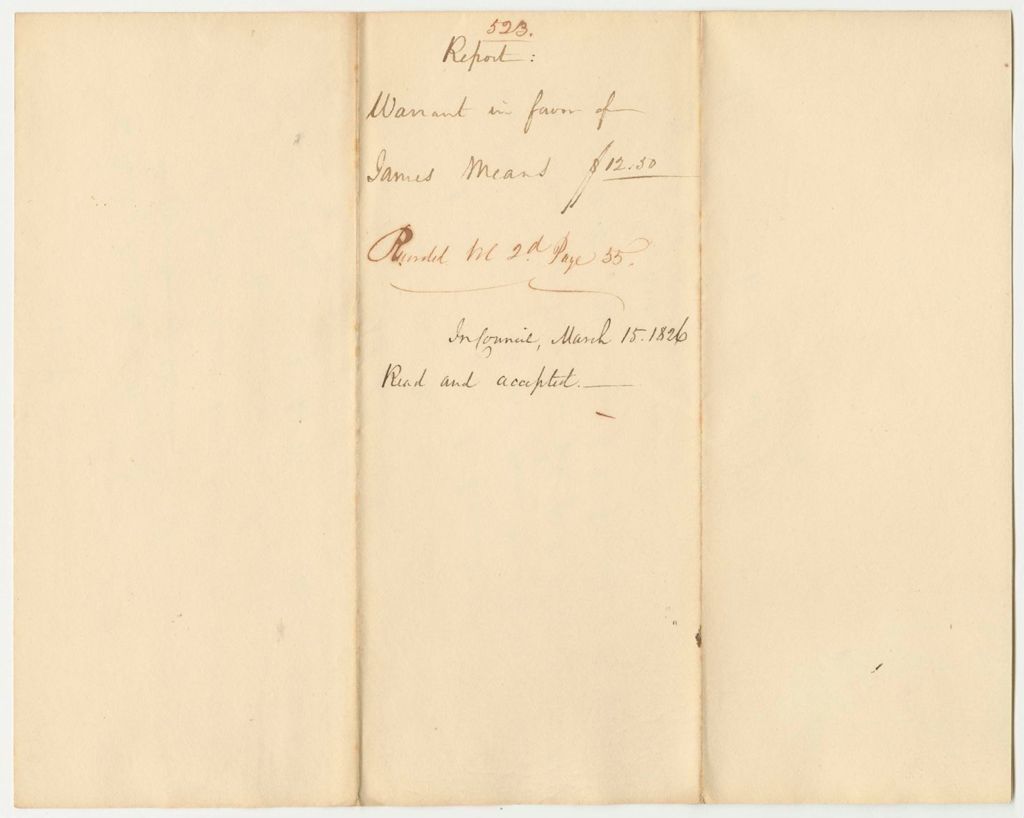 523.
Report:
Warrant in favor of
James Means $12.50
Recorded Vol 2d Page 35.
In Council, March 15. 1826
Read and accepted.